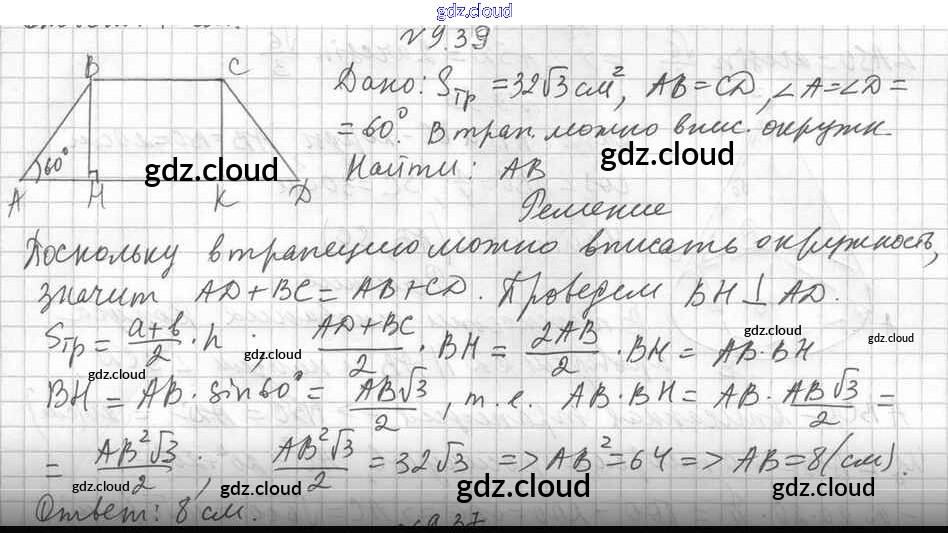 gdz.cloud
№ 9.39
Дано: Sтр = 32√3 см², AB = CD, ∠A = ∠D =
= 60°. В трап. можно впис. окружн.
Найти: AB
B C
60°
A H K D
gdz.cloud
gdz.cloud
Решение
Поскольку в трапецию можно вписать окружность,
значит AD + BC = AB + CD. Проведем BH ⊥ AD.
Sтр = (a+b)/2 · h ; (AD+BC)/2 · BH = 2AB/2 · BH = AB · BH
gdz.cloud gdz.cloud gdz.cloud gdz.cloud
BH = AB · sin60° = AB√3/2, т.е. AB · BH = AB · AB√3/2 =
= AB²√3/2 ; AB²√3/2 = 32√3 => AB² = 64 => AB = 8 (см).
gdz.cloud gdz.cloud gdz.cloud gdz.cloud
Ответ: 8 см.
№ 9.37